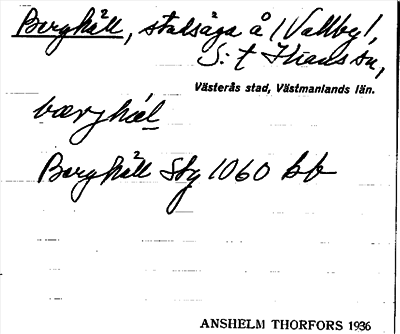 Berghäll, stadsäga å (Vallby),
S:t Ilians sn,
Västerås stad, Västmanlands län.
bærjhæl
Berghäll Stg 1060 bb
ANSHELM THORFORS 1936